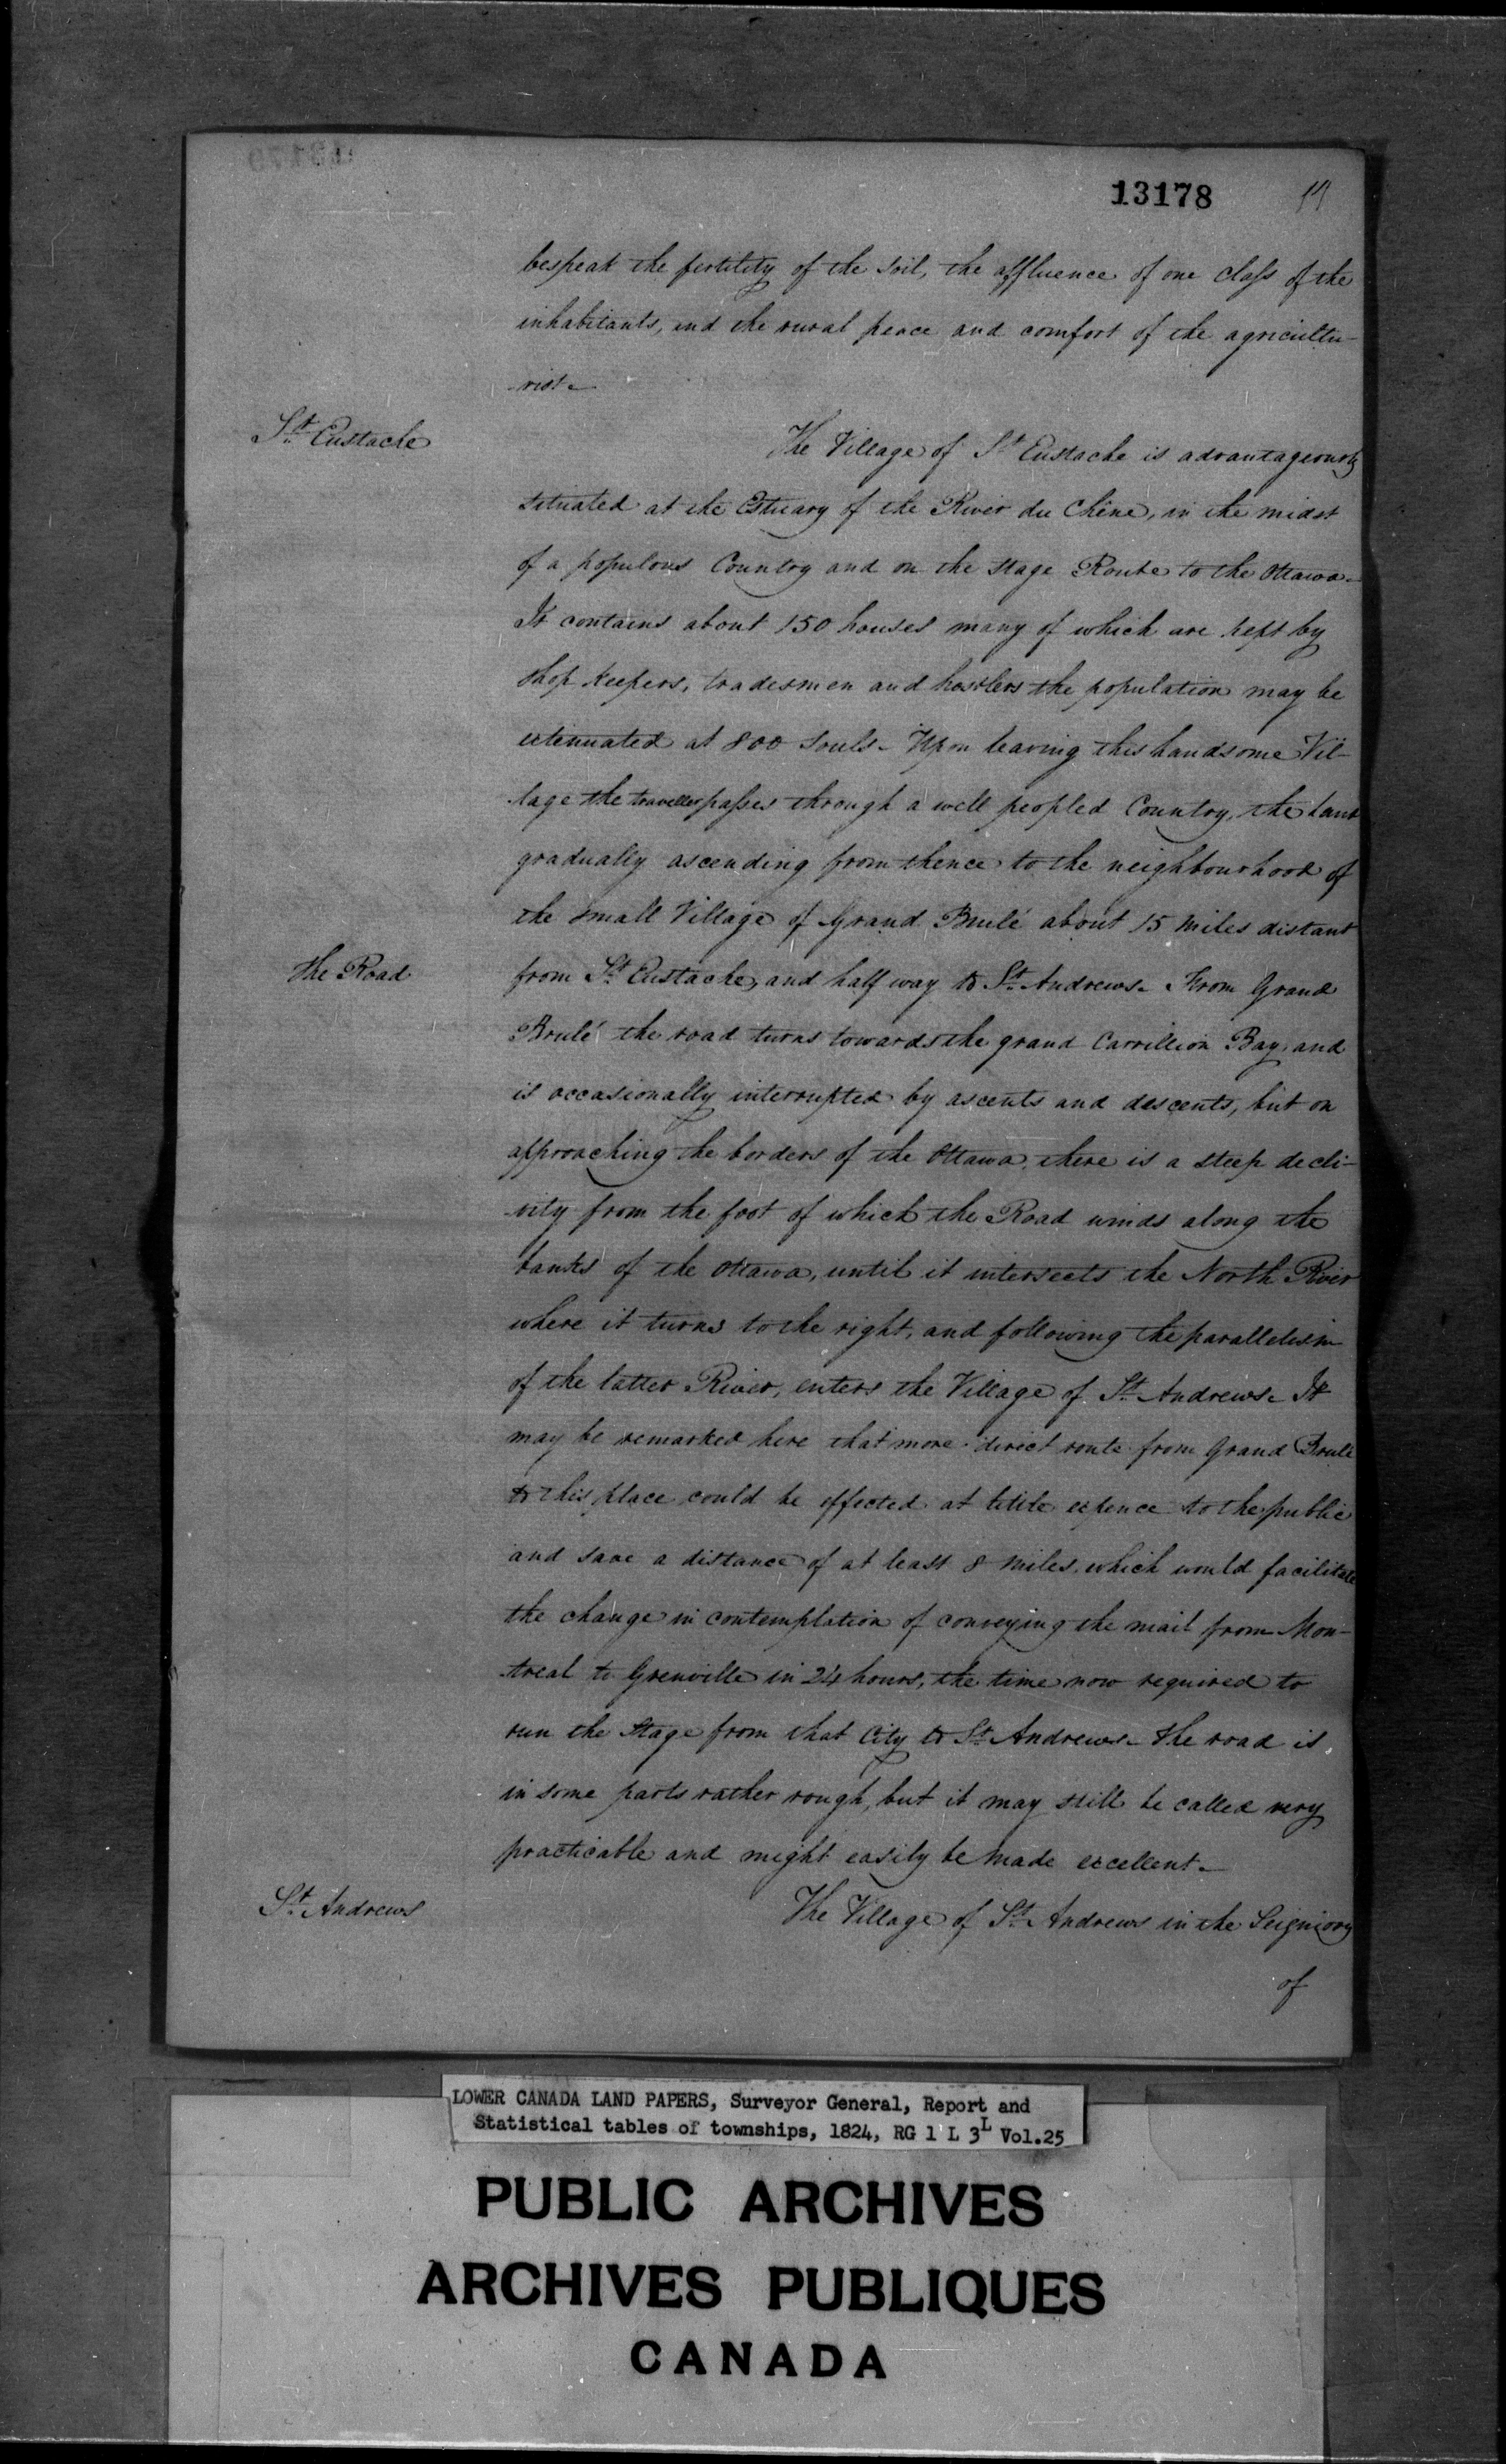 13178
bespeak the fertility of the soil, the affluence of one class of the
inhabitants, and the rural peace and comfort of the agricultu-
-rist.
St. Eustache
The Village of St Eustache is advantageously
situated at the Estuary of the River du Chêne, in the midst
of a populous Country and on the stage Route to the Ottawa.
It contains about 150 houses many of which are kept by
shop keepers, tradesmen and hostlers the population may be
extenuated at 800 souls. Upon leaving this handsome Vil-
-lage the traveller passes through a well peopled Country, the land
gradually ascending from thence to the neighbourhood of
the small Village of Grand Brulé about 15 miles distant
The Road
from St. Eustache, and half way to St. Andrews. From Grand
Brulé the road turns towards the grand Carrillion Bay, and
is occasionally interrupted by ascents and descents, but on
approaching the borders of the Ottawa, there is a steep decli-
-vity from the foot of which the Road winds along the
banks of the Ottawa, until it intersects the North River
where it turns to the right, and following the parallelism
of the latter River, enters the Village of St. Andrews. It
may be remarked here that more direct route from Grand Brulé
to this place could be effected at little expence to the public
and save a distance of at least 8 miles, which would facilitate
the change in contemplation of conveying the mail from Mon-
-treal to Grenville in 24 hours, the time now required to
run the Stage from that City to St. Andrews. The road is,
in some parts rather rough, but it may still be called very
practicable and might easily be made excellent.
St. Andrews
The Village of St. Andrews in the Seigniory
of
LOWER CANADA LAND PAPERS, Surveyor General, Report and
Statistical tables of townships, 1824, RG 1 L 3L Vol.25
PUBLIC ARCHIVES
ARCHIVES PUBLIQUES
CANADA